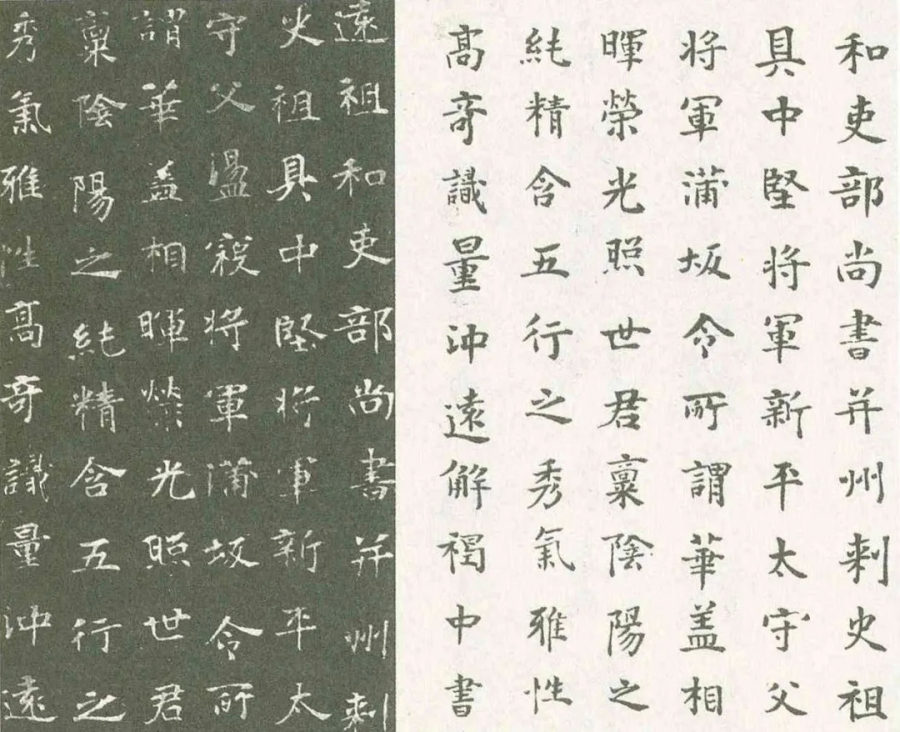 和吏部尚書并州刾史祖
具中堅将軍新平太守父
将軍蒲坂令所謂華盖相
暉榮光照世君稟陰陽之
純精含五行之秀氣雅性
高奇識量沖遠解褐中書
遠祖和吏部尚書并州刾
史祖具中堅将軍新平太
守父盪寇将軍蒲坂令所
謂華盖相暉榮光照世君
稟陰陽之純精含五行之
秀氣雅性高奇識量沖遠